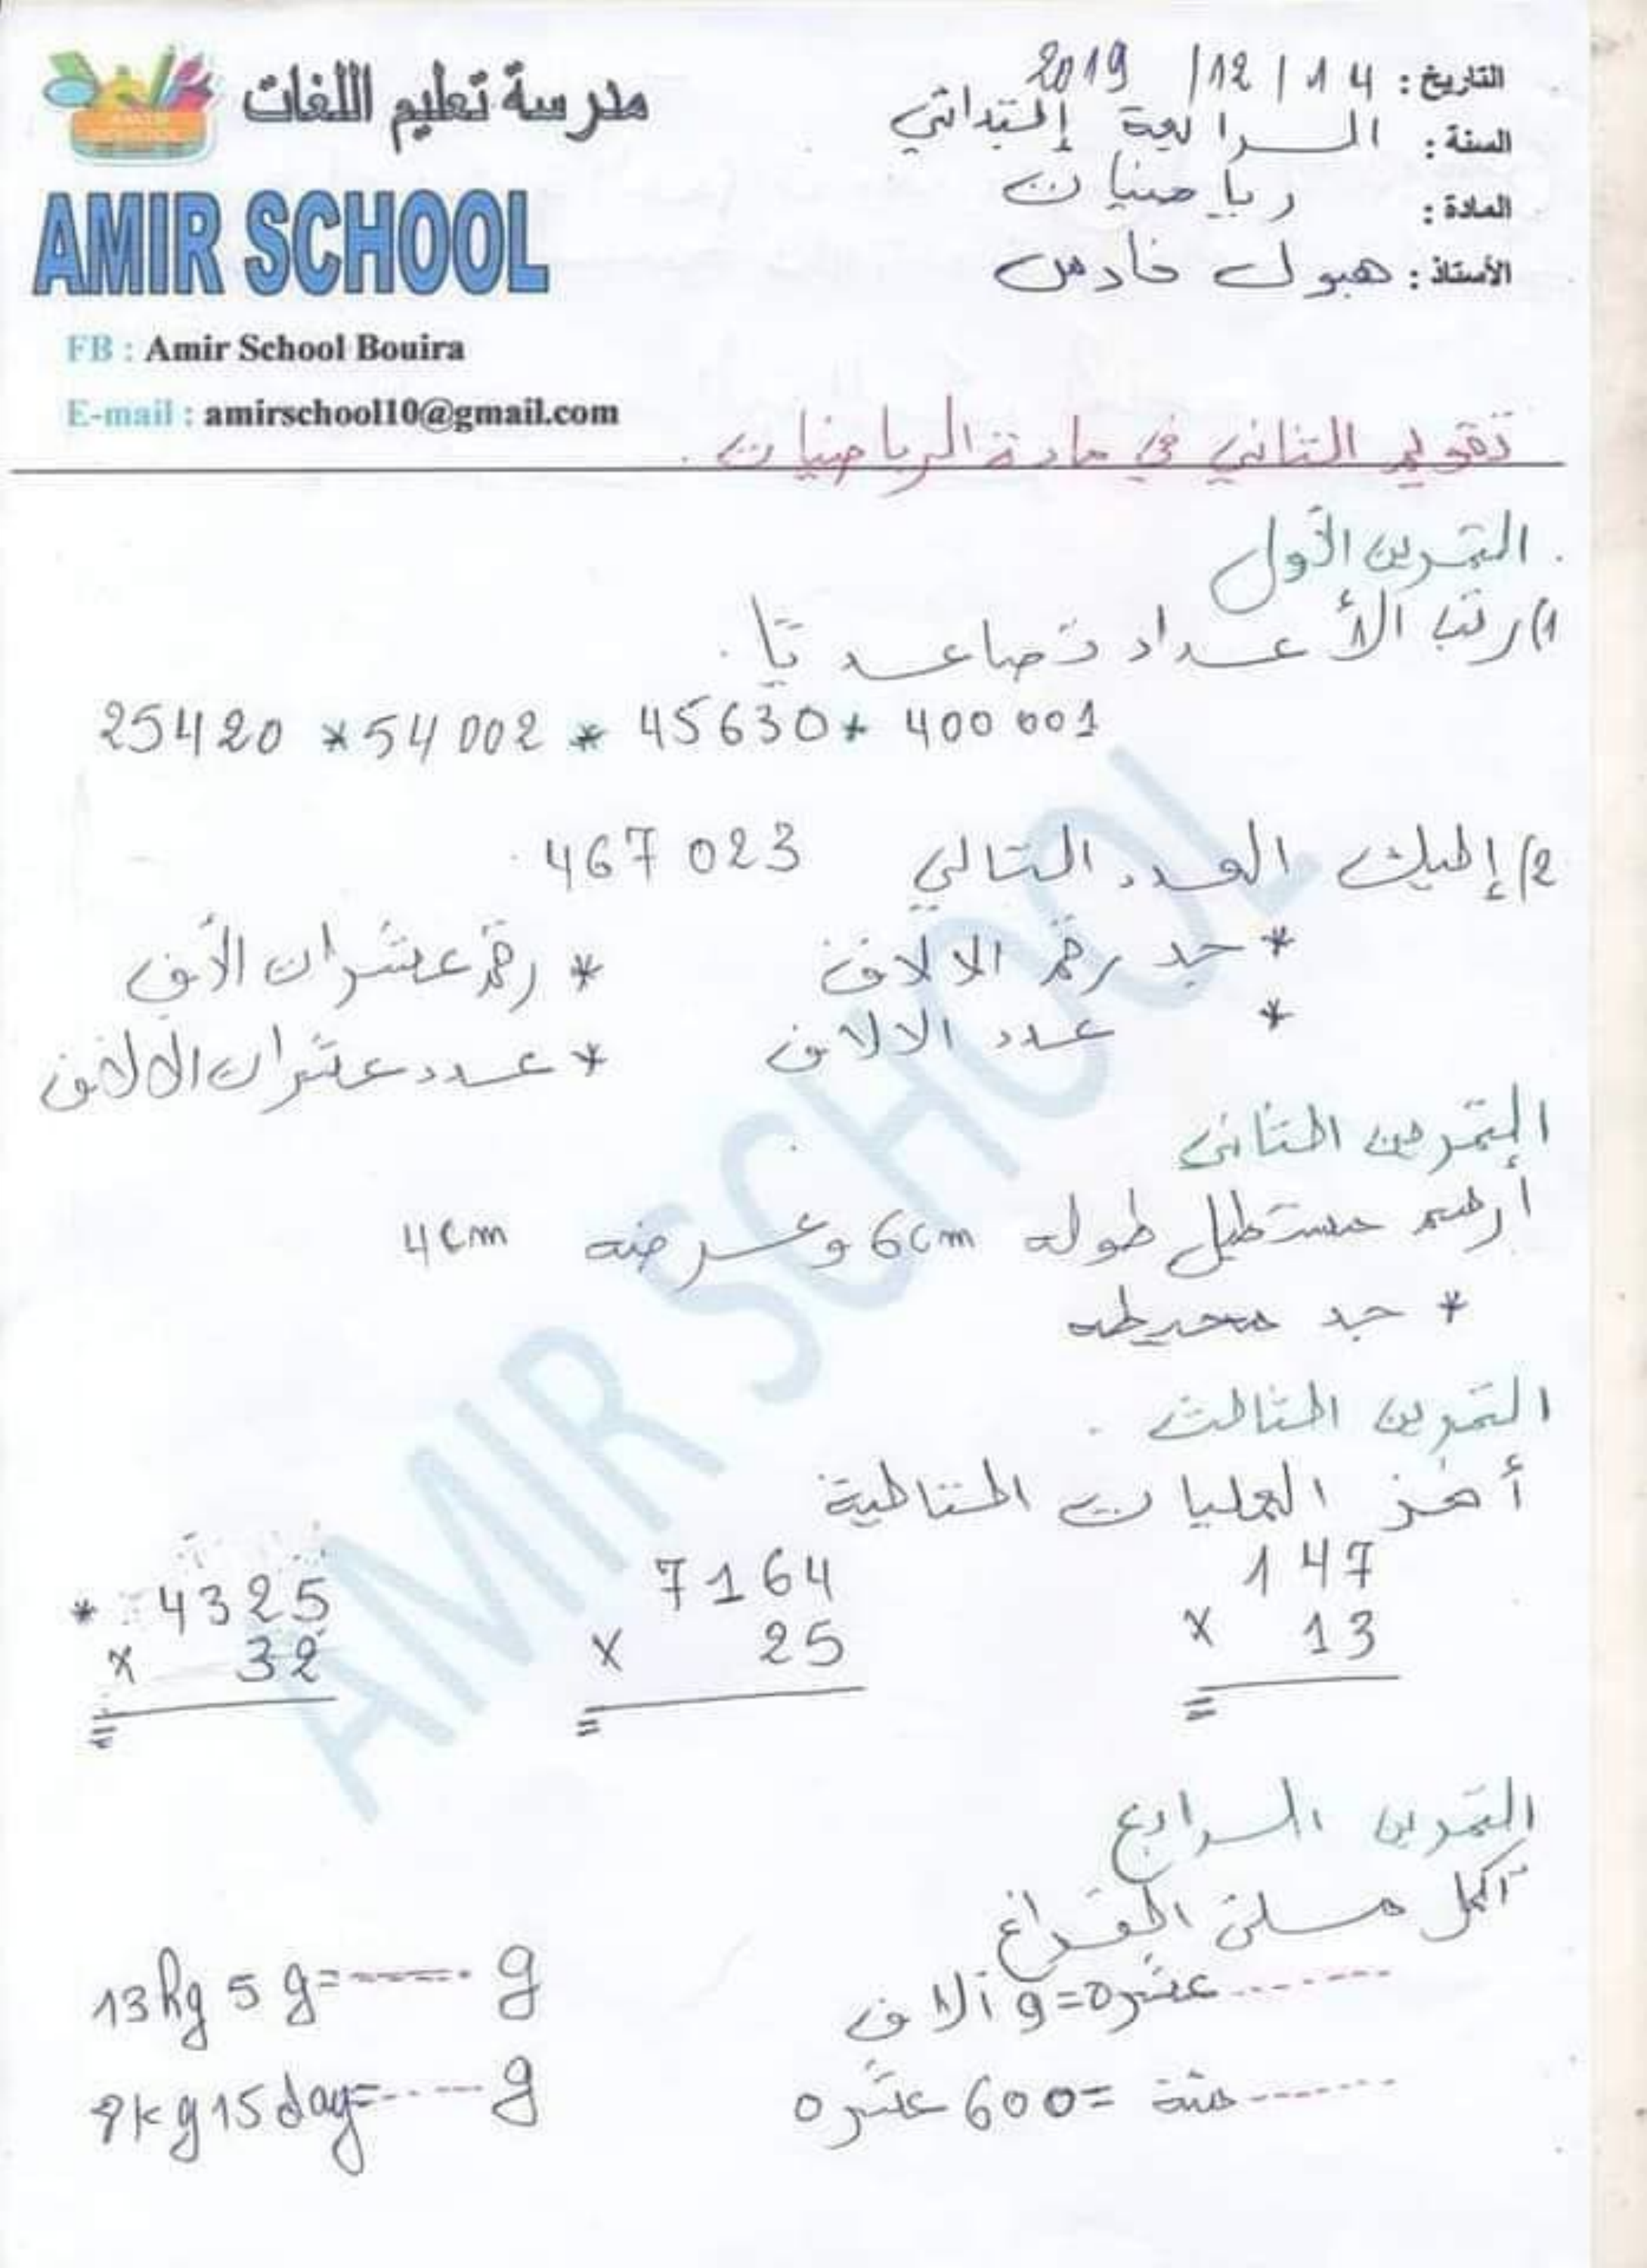 AMIR SCHOOL
مدرسة تعليم اللغات
AMIR SCHOOL
FB : Amir School Bouira
E-mail : amirschool10@gmail.com
التاريخ : 14 / 12 / 2019
السنة : الرابعة إبتدائي
المادة : رياضيات
الأستاذ : هبول فارس
تقويم الثاني في مادة الرياضيات .
التمرين الأول .
1) رتب الأعداد تصاعديا .
25420 * 54 002 * 45630 * 400 001
2/ إليك العدد التالي 467 023 .
* جد رقم الالاف * رقم عشرات الأف
* عدد الالاف * عدد عشرات الالاف
التمرين الثاني
أرسم مستطيل طوله 6cm و عرضه 4cm
* جد محيطه
التمرين الثالث .
أنجز العمليات التالية
147
x 13
=
7164
x 25
=
* 4325
x 32
=
التمرين الرابع
أكمل ملئ الفراغ
....... عشرة = 9 ألاف
....... مئة = 600 عشرة
13hg 5 g = ....... g
9kg 15 dag = ....... g
AMIR SCHOOL